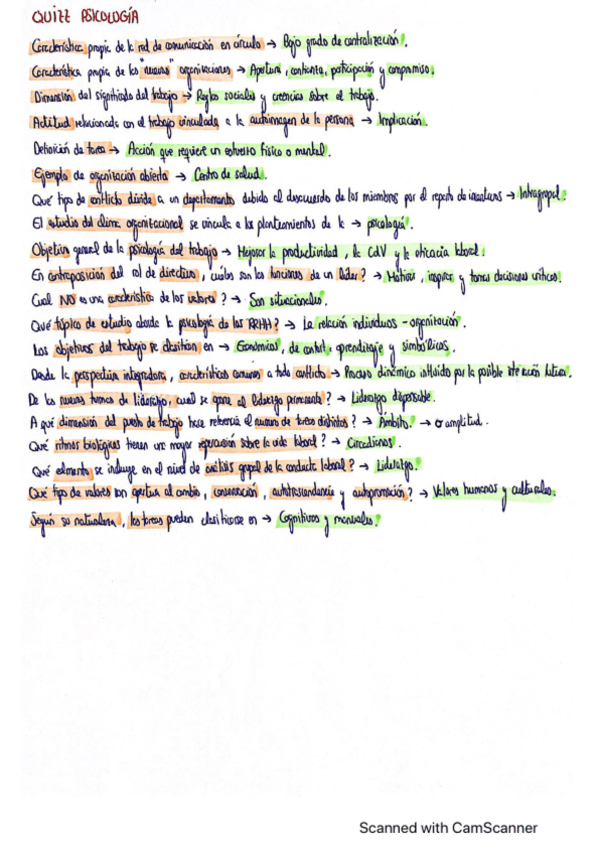 QUIZZ PSICOLOGÍA
Característica propia de la red de comunicación en círculo → Bajo grado de centralización.
Característica propia de las "nuevas" organizaciones → Apertura, confianza, participación y compromiso.
Dimensión del significado del trabajo → Reglas sociales y creencias sobre el trabajo.
Actitud relacionada con el trabajo vinculada a la autoimagen de la persona → Implicación.
Definición de tarea → Acción que requiere un esfuerzo físico o mental.
Ejemplo de organización abierta → Centro de salud.
Qué tipo de conflicto divide a un departamento debido al desacuerdo de los miembros por el reparto de → Intragrupal.
El estudio del clima organizacional se vincula a los planteamientos de la → psicología.
Objetivo general de la psicología del trabajo → Mejorar la productividad, la CdV y la eficacia laboral.
En contraposición del rol de directivo, cuáles son las funciones de un líder? → Motivar, inspirar y tomar decisiones críticas.
Cual NO es una característica de los valores? → Son situacionales.
Qué tópico de estudio aborda la psicología de los RRHH? → La relación individuos - organización.
Los objetivos del trabajo se clasifican en → Económicos, de confort, aprendizaje y simbólicos.
Desde la perspectiva integradora, características comunes a todo conflicto → Proceso dinámico influido por la posible interacción futura.
De las nuevas formas de liderazgo, cual se opone al liderazgo permanente? → Liderazgo dispensable.
A qué dimensión del puesto de trabajo hace referencia el número de tareas distintas? → Ámbito. → o amplitud.
Qué ritmos biológicos tienen una mayor repercusión sobre la vida laboral? → Circadianos.
Qué elemento se incluye en el nivel de análisis grupal de la conducta laboral? → Liderazgo.
Qué tipo de valores son apertura al cambio, conservación, autotrascendencia y autopromoción? → Valores humanos y culturales.
Según su naturaleza, las tareas pueden clasificarse en → Cognitivas y manuales.
Scanned with CamScanner